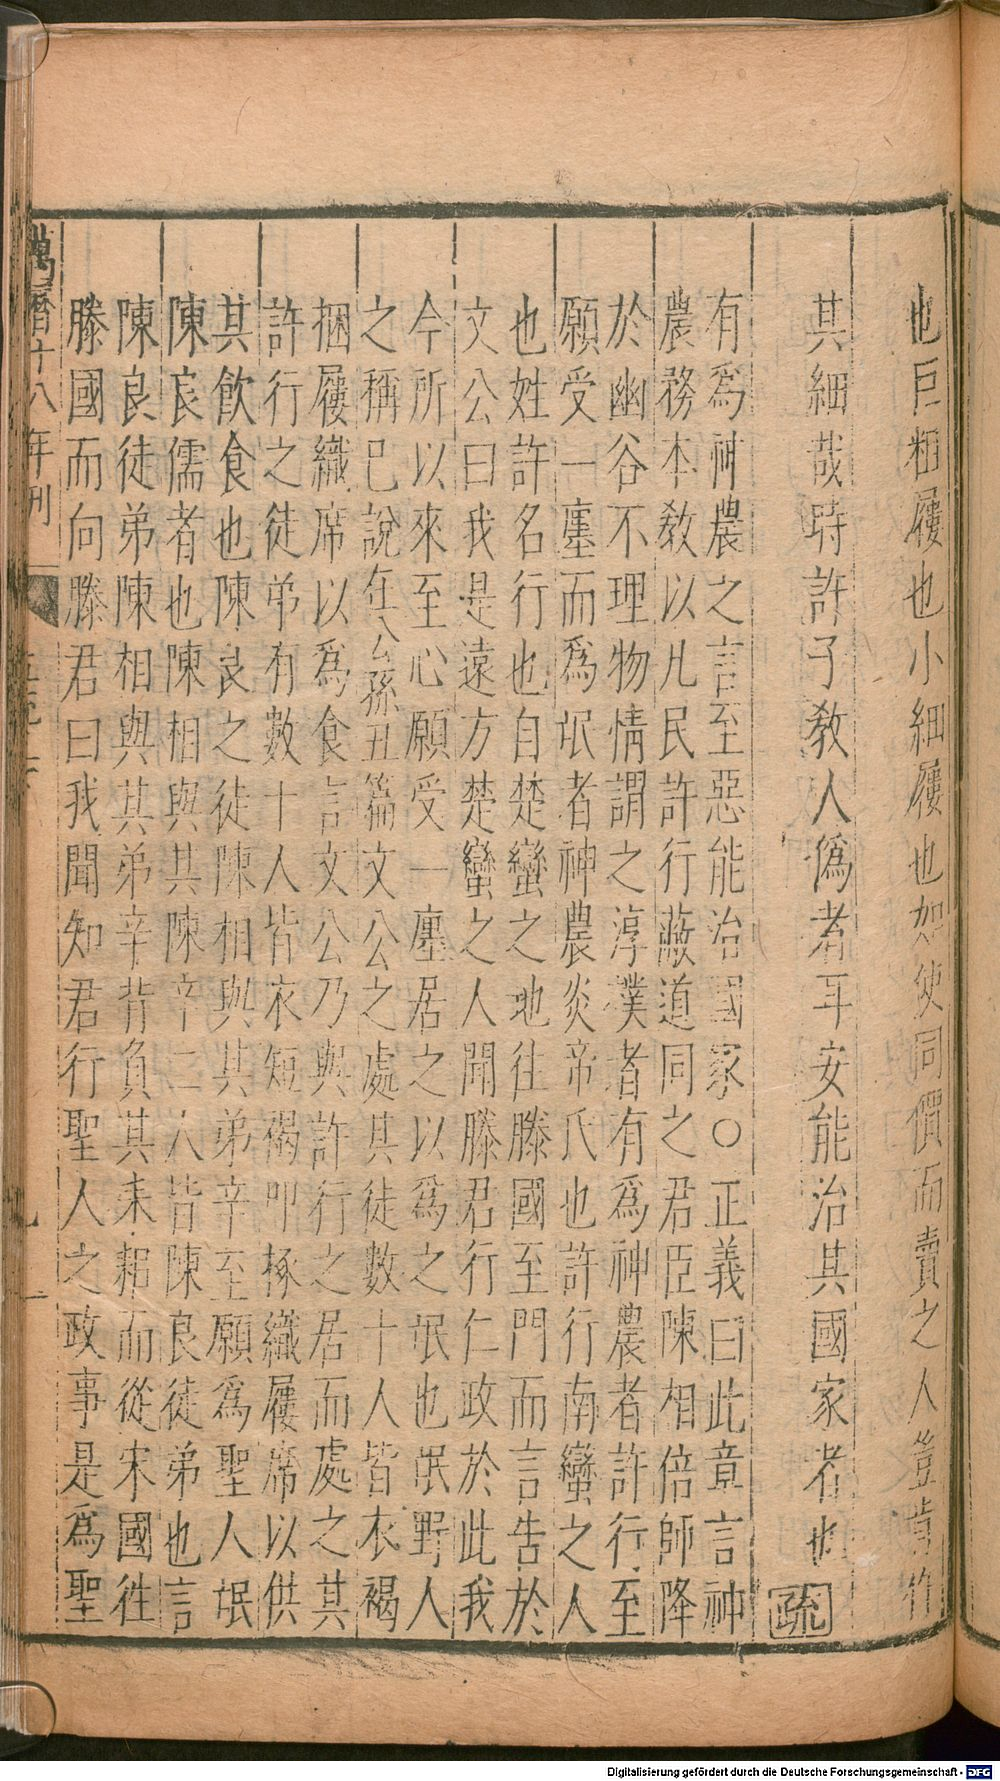 也巨粗屨也小細屨也如使同價而賣之人豈肯作
其細哉時許子教人偽者耳安能治其國家者也疏
有為神農之言至惡能治國家○正義曰此章言神
農務本教以凡民許行蔽道同之君臣陳相倍師降
於幽谷不理物情謂之淳樸者有為神農者許行至
願受一廛而為氓者神農炎帝氏也許行南蠻之人
也姓許名行也自楚蠻之地往滕國至門而言告於
文公曰我是遠方楚蠻之人聞滕君行仁政於此我
今所以來至心願受一廛居之以為之氓也氓野人
之稱已說在公孫丑篇文公之處其徒數十人皆衣褐
捆屨織席以為食言文公乃與許行之居而處之其
許行之徒弟有數十人皆衣短褐叩椓織屨席以供
其飲食也陳良之徒陳相與其弟辛至願為聖人氓
陳良儒者也陳相與其陳辛二人皆陳良徒弟也言
陳良徒弟陳相與其弟辛背負其耒耜而從宋國徃
滕國而向滕君曰我聞知君行聖人之政事是為聖
萬曆十八年刊
Digitalisierung gefördert durch die Deutsche Forschungsgemeinschaft - DFG